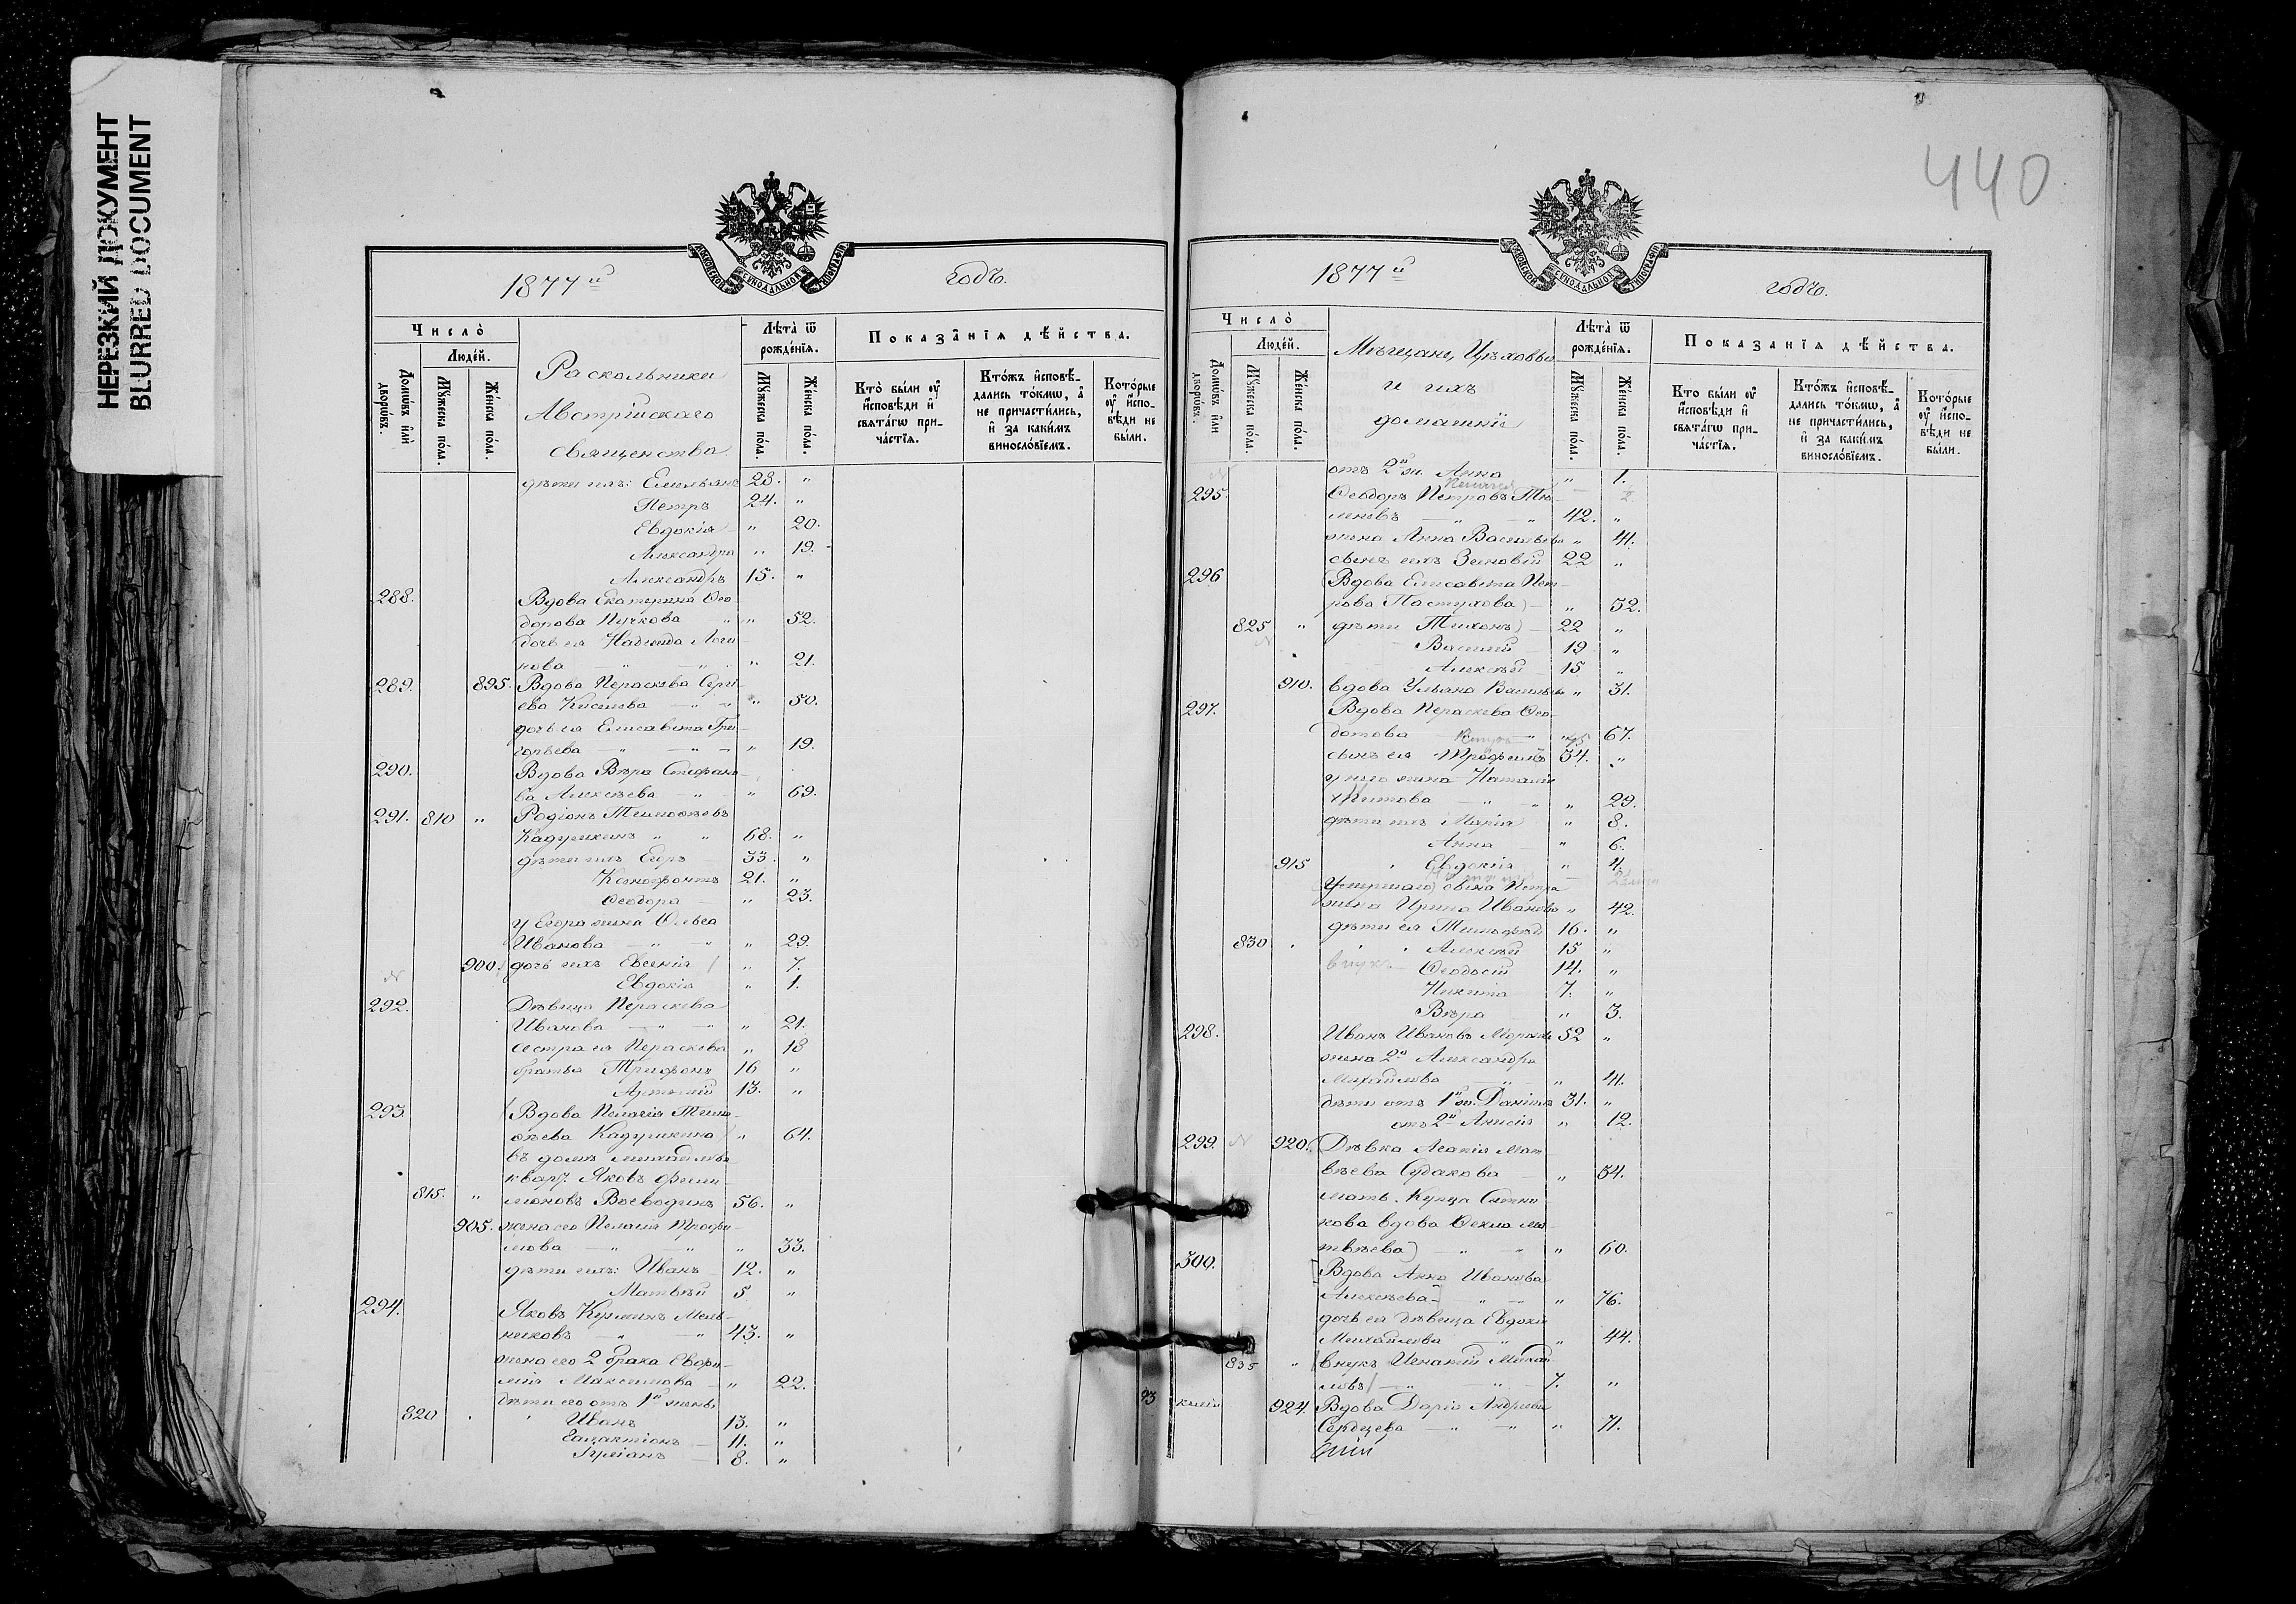 НЕРЕЗКИЙ ДОКУМЕНТ
BLURRED DOCUMENT
МОСКОВСКОЙ СѴНОДАЛЬНОЙ ТИПОГРАФІИ
1877й годъ.
Число̀
Людей.
Домѡвъ или дворѡвъ.
Мꙋжеска пола.
Женска пола.
Раскольники
Австрійскаго
священства
Лѣта̀ ѿ рожденїѧ.
Мꙋжеска пола.
Женска пола.
Показанїѧ дѣйства.
Кто̀ были ᲂу҆ исповѣди и свѧтагѡ при-
частїѧ.
Ктожъ исповѣ-
дались токмѡ, а
не причастились,
и за какимъ
винословїемъ.
Которые
ᲂу҆ испо-
вѣди не
были.
дѣти ихъ: Емельянъ 28. "
Петръ 24. "
Евдокія " 20.
Александра " 19.
Александръ 15. "
288. Вдова Екатерина Ѳео-
дорова Пучкова " " 52.
дочь ея Надежда
нова " " " 21.
289. 895. Вдова Параскева Серги-
ева Киселева " " 50.
дочь ея Елисавета Гри-
горьева " " " 19.
290. Вдова Вѣра Стефано-
ва Алексѣева " " 69.
291. 810 " Родіонъ Тимоѳѣевъ
Кадушкинъ " " 68. "
дѣти ихъ Егоръ 33. "
Ксенофонтъ 21. "
Ѳеодора " 23.
у Егора жена Ольга
Иванова " " " 29.
900. дочь ихъ Евгенія " 7.
Евдокія " 1.
292. Дѣвица Параскева
Иванова " " " 21.
сестра ея Параскева " 18
братья Трифонъ 16 "
Артемій 13. "
293. Вдова Пелагія Тимо-
ѳѣева Кадушкина " 64.
въ домѣ
кварт. Яковъ Фили-
815. " моновъ Воеводинъ 56. "
905. жена его Пелагія Трофи-
мова " " 33.
дѣти ихъ: Иванъ 12. "
Матвѣй 5 "
294. Яковъ Мель-
никовъ " " 43. "
жена его 2 брака Евфи-
мія Максимова " 22.
дѣти его отъ 1й жены
820 Иванъ 13. "
11. "
8. "
440
1877й годъ.
Число̀
Людей.
Домѡвъ или дворѡвъ.
Мꙋжеска пола.
Женска пола.
Мѣщане, Цѣховые
и ихъ
домашніе
Лѣта̀ ѿ рожденїѧ.
Мꙋжеска пола.
Женска пола.
Показанїѧ дѣйства.
Кто были ᲂу҆ исповѣди и свѧтагѡ при-
частїѧ.
Ктожъ исповѣ-
дались токмѡ, а
не причастились,
и за какимъ
винословїемъ.
Которые
ᲂу҆ испо-
вѣди не
были.
отъ 2й ж. Анна " 1.
295. Ѳеодоръ Петровъ
42. "
жена Анна Васильева " 41.
сынъ ихъ Зиновій 22 "
296 Вдова Елисавета Пет-
рова Пастухова " 52.
825 " дѣти Тихонъ 22 "
Василій 19 "
Алексѣй 15 "
910. вдова Ульяна Васильева " 31.
297. Вдова Параскева Ѳео-
дотова " " 67.
сынъ ея Трофимъ 34. "
у него жена Наталія
Титова " " " 29.
дѣти ихъ Марія " 8.
Анна " 6.
915 Евдокія " 4.
Умершаго сына Петра
жена Ирина Иванова " 42.
дѣти ея Тимофѣй 16. "
830 Алексѣй 15 "
внукъ Ѳеодосій 14. "
Никита 7. "
Вѣра " 3.
298. Иванъ Ивановъ 52 "
жена 2я Александра
Михайлова " " 41.
дѣти отъ 1й ж. Даніилъ 31. "
отъ 2й Анисія " 12.
299. 920. Дѣвка Агапія Мат-
вѣева Судакова " 54.
мать. Купца
кова вдова Ѳекла Ма-
твѣева " " " 60.
300. Вдова Анна Иванова
Алексѣева " " " 76.
дочь ея дѣвица Евдокія
Михайлова " " 44.
835 " внукъ Игнатій Михай-
ловъ " " 7. "
924. Вдова Дарія Андреева
Сердцева " " " 71.